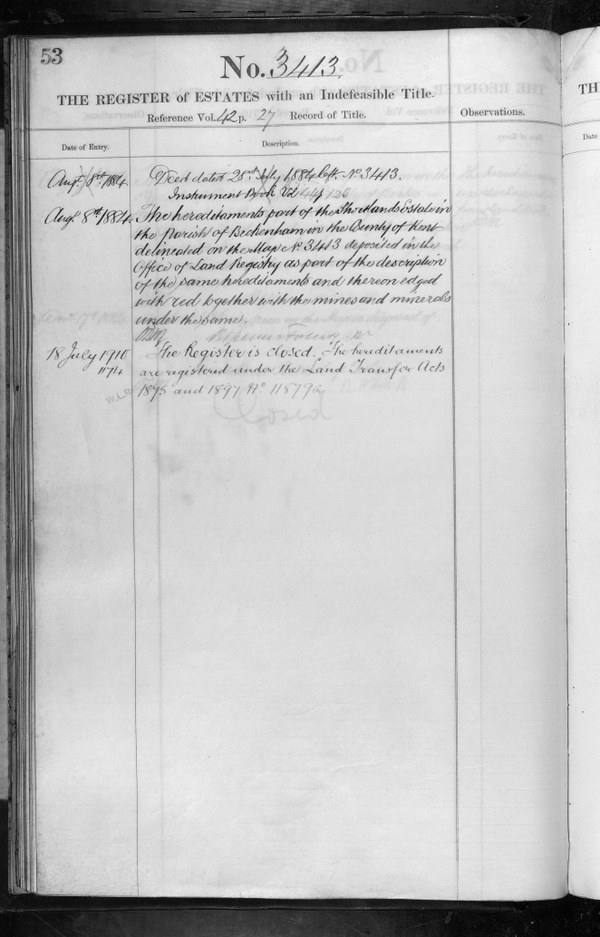 53
No. 3413.
THE REGISTER of ESTATES with an Indefeasible Title.
Reference Vol. 42 p. 27 Record of Title.
Observations.
Date of Entry.
Description.
Augt. 8th 1884.
Deed dated 25th July 1884 left No 3413.
Instrument Book Vol 44 p 126
Augt 8th 1884.
The hereditaments part of the Shortlands Estate in
the parish of Beckenham in the County of Kent
delineated on the Map No 3413 deposited in the
Office of Land Registry as part of the description
of the same hereditaments and thereon edged
with red together with the mines and minerals
under the same.
18 July 1910
The Register is closed. The hereditaments
1174
are registered under the Land Transfer Acts
1875 and 1897 No 118792
Closed
TH
Date